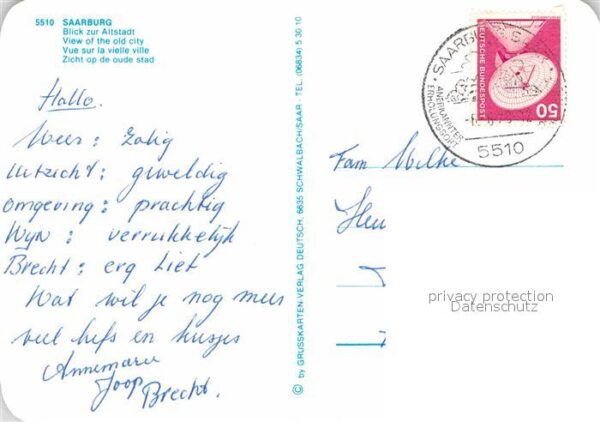 5510 SAARBURG
Blick zur Altstadt
View of the old city
Vue sur la vielle ville
Zicht op de oude stad
Hallo.
Weer: Zalig
Uitzicht: geweldig
Omgeving: prachtig
Wijn: verrukkelijk
Brecht: erg liet
Wat wil je nog meer
veel liefs en kusjes
Annemarie
Joop
Brecht.
© by GRUSSKARTEN-VERLAG DEUTSCH, 6635 SCHWALBACH/SAAR - TEL. (06834) 5 30 10
SAARBURG
ANERKANNTER
ERHOLUNGSORT
5510
DEUTSCHE BUNDESPOST
50
Fam Wilke
Heu
privacy protection
Datenschutz